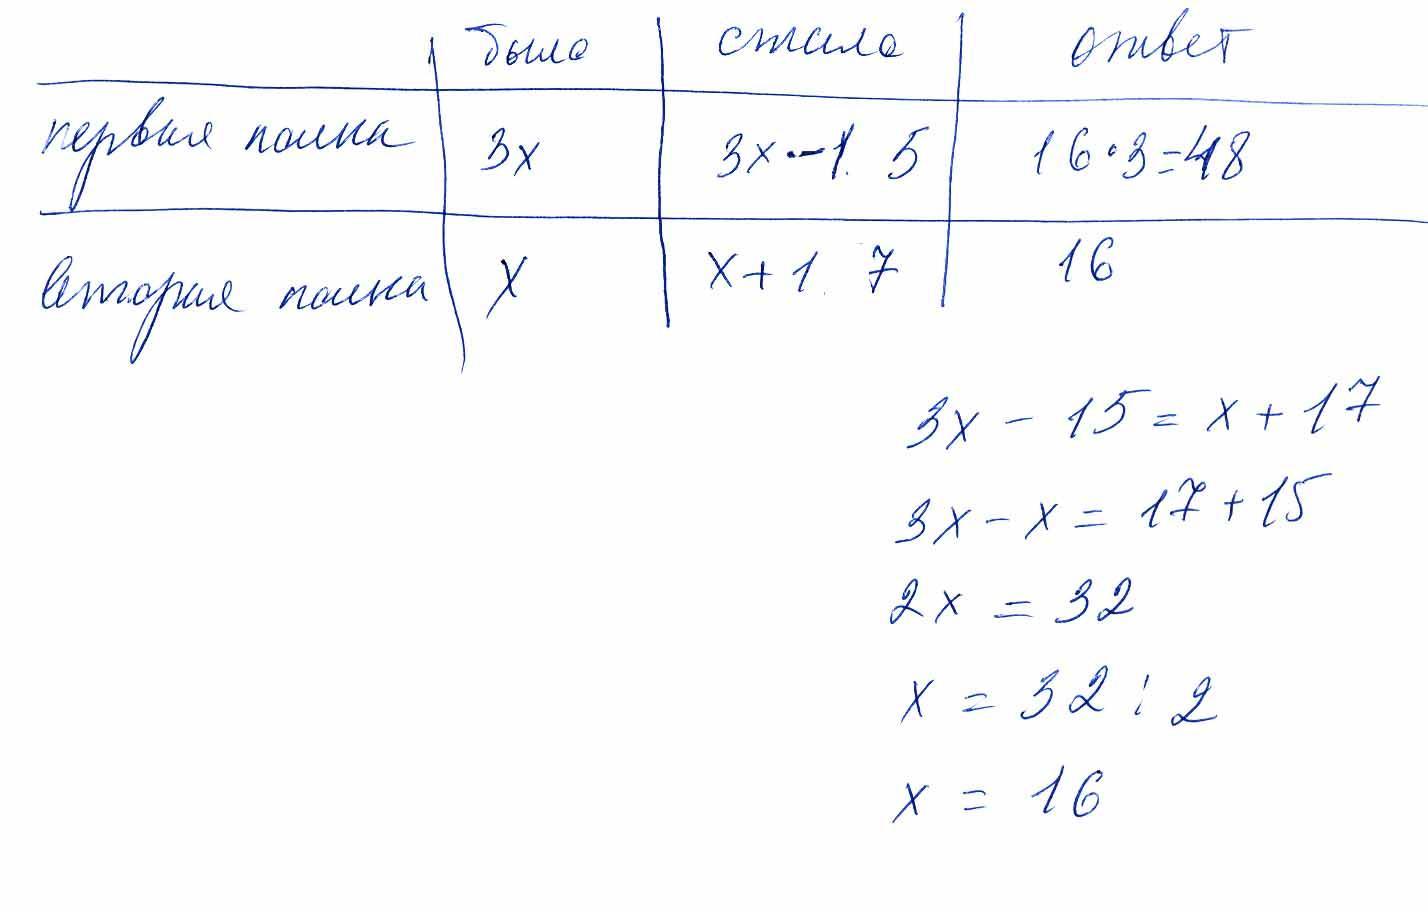 было стало ответ
первая полка 3х 3х - 15 16·3=48
вторая полка х х + 17 16
3х - 15 = х + 17
3х - х = 17 + 15
2х = 32
х = 32 : 2
х = 16